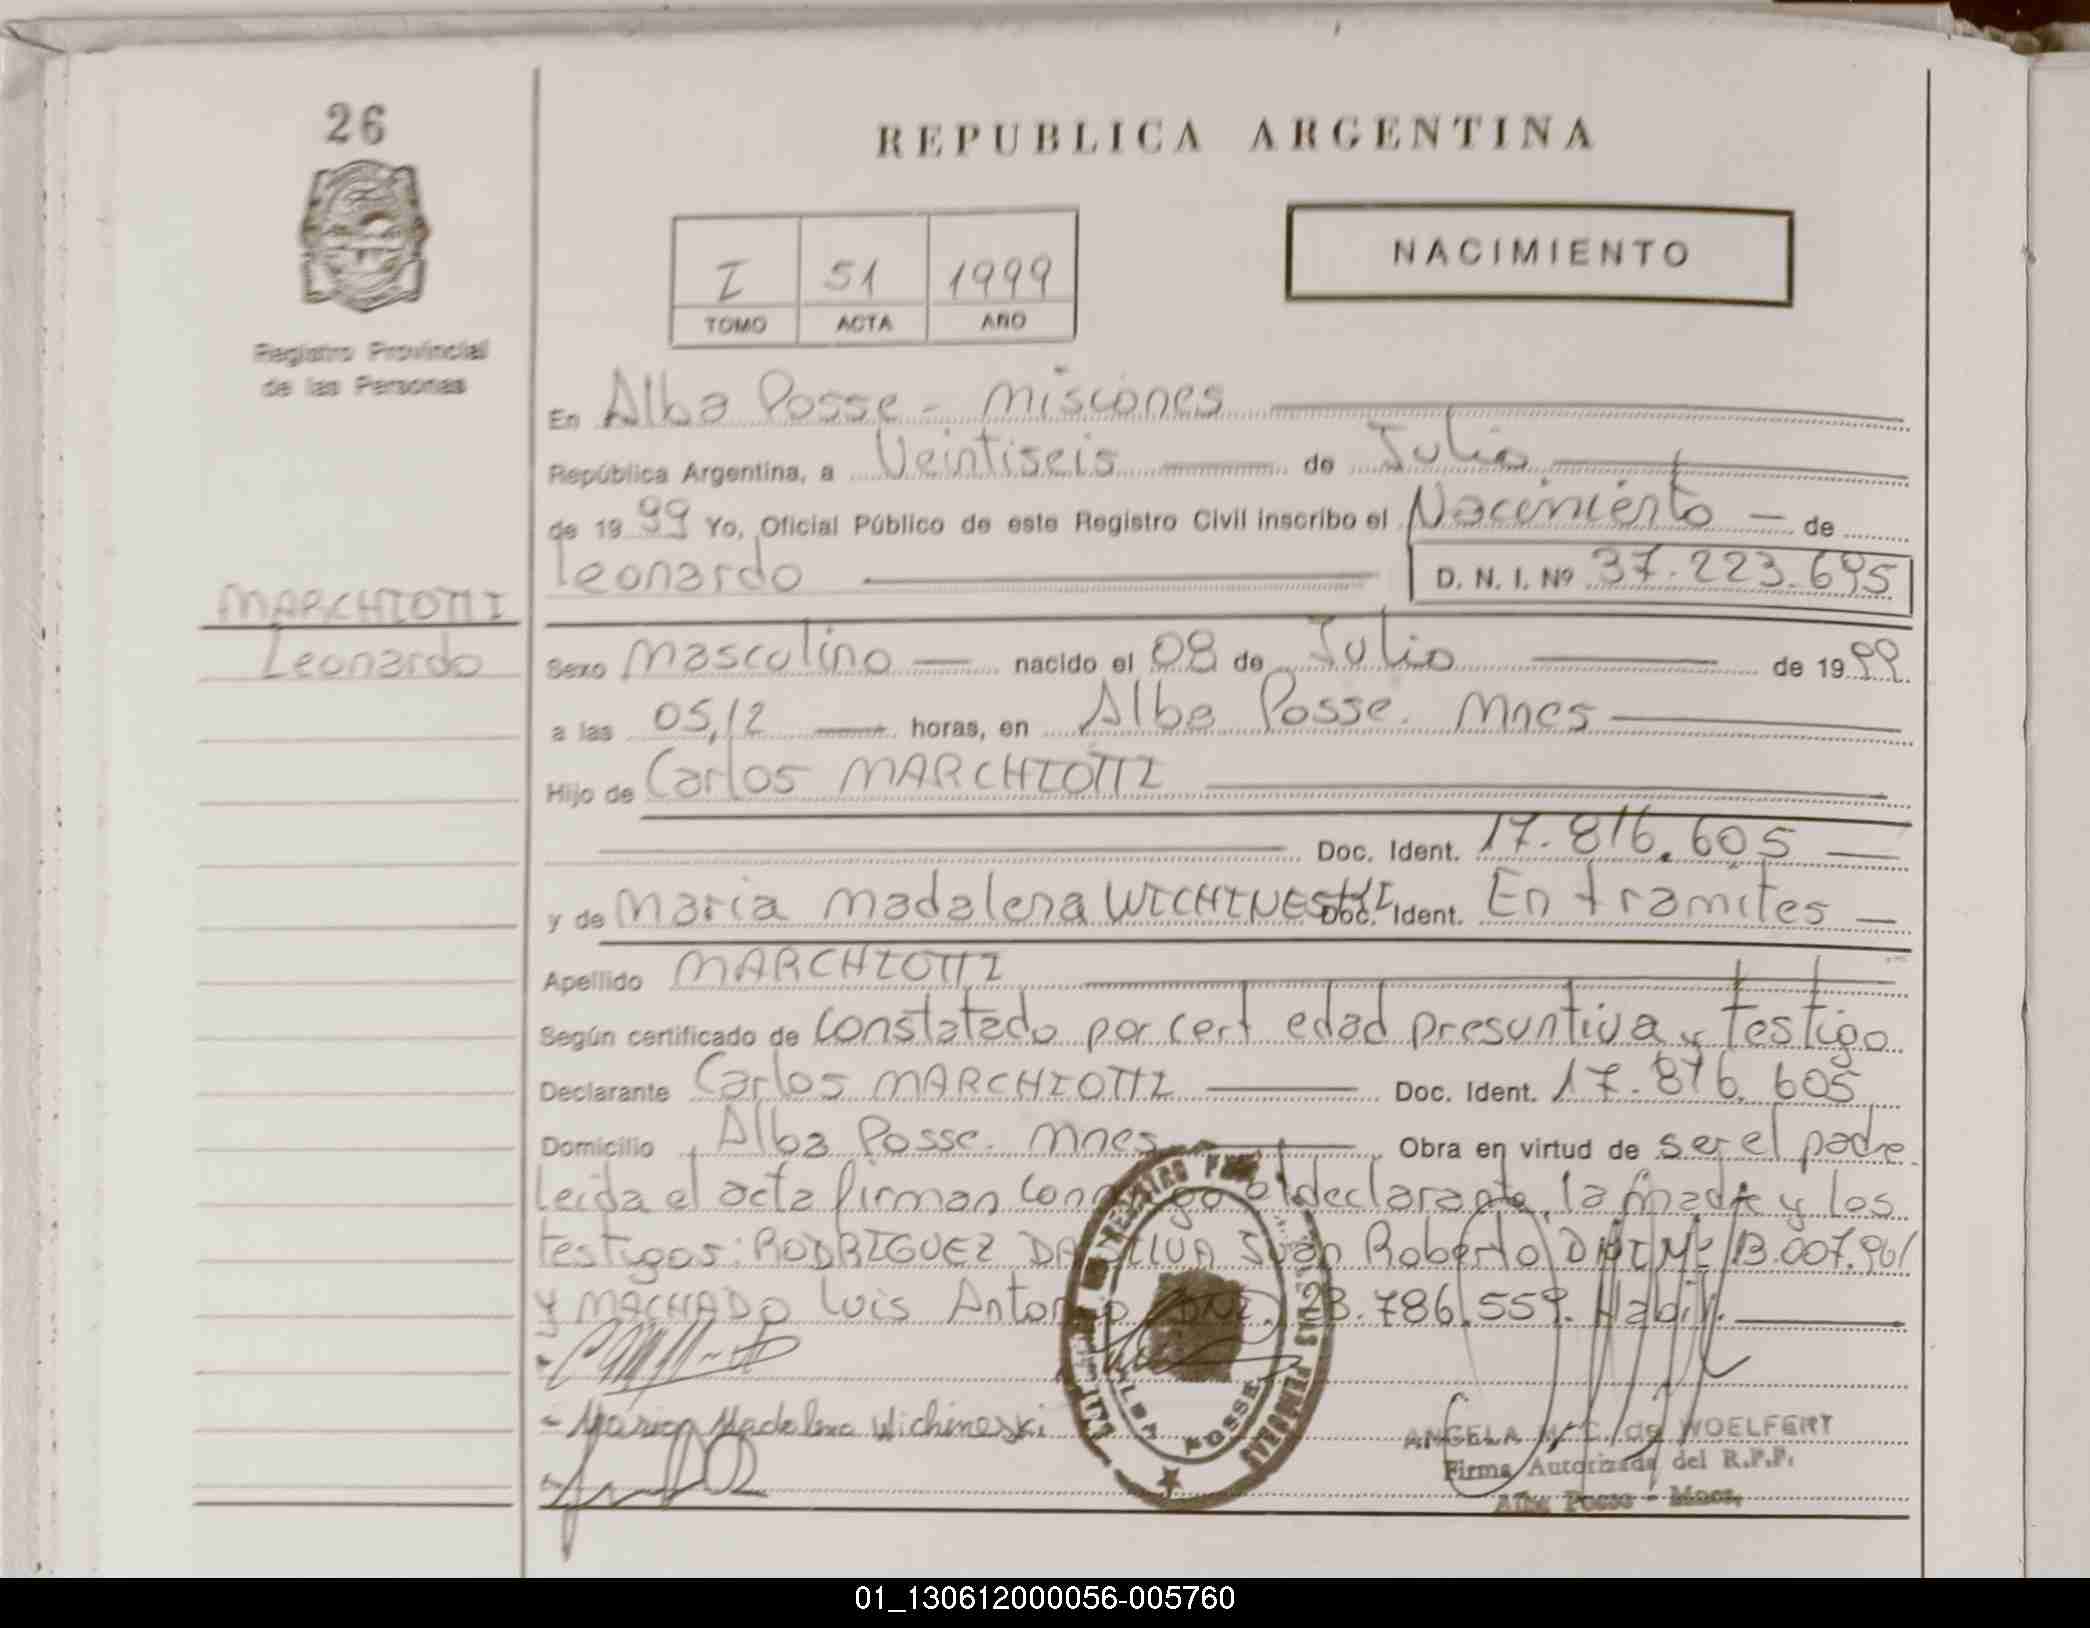 26
REPUBLICA ARGENTINA
NACIMIENTO
I 51 1999
TOMO ACTA AÑO
Registro Provincial
de las Personas
En Alba Posse - Misiones
República Argentina, a Veintiseis de Julio
de 1999 Yo, Oficial Público de este Registro Civil inscribo el Nacimiento - de
Leonardo D. N. I. Nº 37.223.695
MARCHIOTTI
Leonardo
Sexo Masculino nacido el 08 de Julio de 1999
a las 05,12 horas, en Alba Posse. Mnes
Hijo de Carlos MARCHIOTTI
Doc. Ident. 17.816.605
y de Maria Madalena WICHINESKI Doc. Ident. En tramites
Apellido MARCHIOTTI
Según certificado de Constatado por cert edad presuntiva y testigo
Declarante Carlos MARCHIOTTI Doc. Ident. 17.816.605
Domicilio Alba Posse. Mnes Obra en virtud de ser el padre.
Leida el acta firman conmigo el declarante, la madre y los
testigos: RODRIGUEZ DA SILVA Juan Roberto DNI Nº 13.007.961
y MACHADO Luis Antonio DNI. 23.786.559. Habil.
- Maria Madalena Wichineski
ALBA POSSE
ANGELA M. C. de WOELFERT
Firma Autorizada del R.P.P.
Alba Posse - Mnes.
01_130612000056-005760